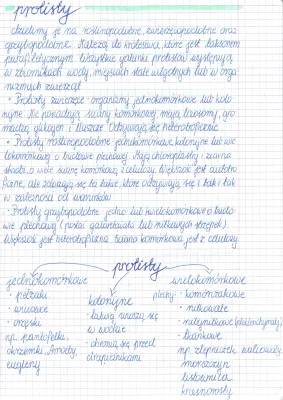 protisty
dzielimy je na roślinopodobne, zwierzępodobne oraz
grzybopodobne. Należą do królestwa, które jest taksonem
parafiletycznym. Wszystkie gatunki protistów występują
w zbiornikach wody, miejscach stale wilgotnych lub w orga
nizmach zwierząt
• Protisty zwierzęce - organizmy jednokomórkowe lub kolo
nijne. Nie posiadają ściany komórkowej, mają lizosomy, gro
madzą glikogen i tłuszcze. Odżywiają się heterotroficznie.
• Protisty roślinopodobne jednokomórkowe, kolonijne lub wie
lokomórkowe o budowie plechowej. Mają chloroplasty i ściana
składa się z celulozy. Większość jest autotro
ficzne, ale zdarzają się to takie, które odżywiają się i tak i tak
w zależności od warunków
• Protisty grzybopodobne jedno lub wielokomórkowe o budo
wie plechowej (postać galaretowata lub nitkowatych strzępek)
Większość jest heterotroficzna. Ściana komórkowa jest z celulozy.
protisty
jednokomórkowe
• pełzaki
• wiciowce
• orzęski
np. pantofelka,
okrzemki, Ameby,
eugleny
kolonijne
• łatwiej unoszą się
w wodzie
• chronią się przed
drapieżnikami
wielokomórkowe
plechy: • komórczakowe
• nitkowate
• nitkowate
• tkankowe
np. zlepniczek walcowaty
morszczyn
listownica
krasnorosty